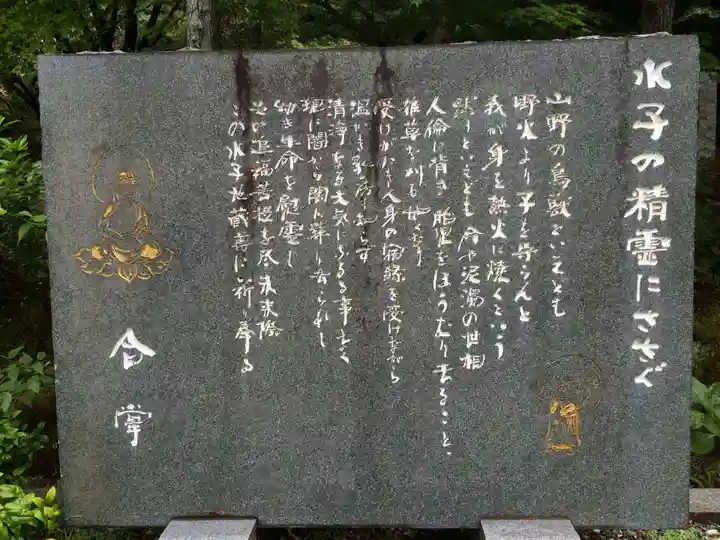 水子の精霊にささぐ
山野の鳥獣といえども
野火より子を守らんと
我が身を熱火に焼くという
然りといえども今や泥濁の世相
人倫に背き胎児をほうむり去ること、
雑草を刈る如くなり
受けがたき人身の縁を受けながら
温かき
清浄なる大気にふるる事なく
現に闇から闇に葬り去られし
幼き生命を慰霊し
追福菩提を尽未来際
この水子地蔵尊に祈り奉る
合掌